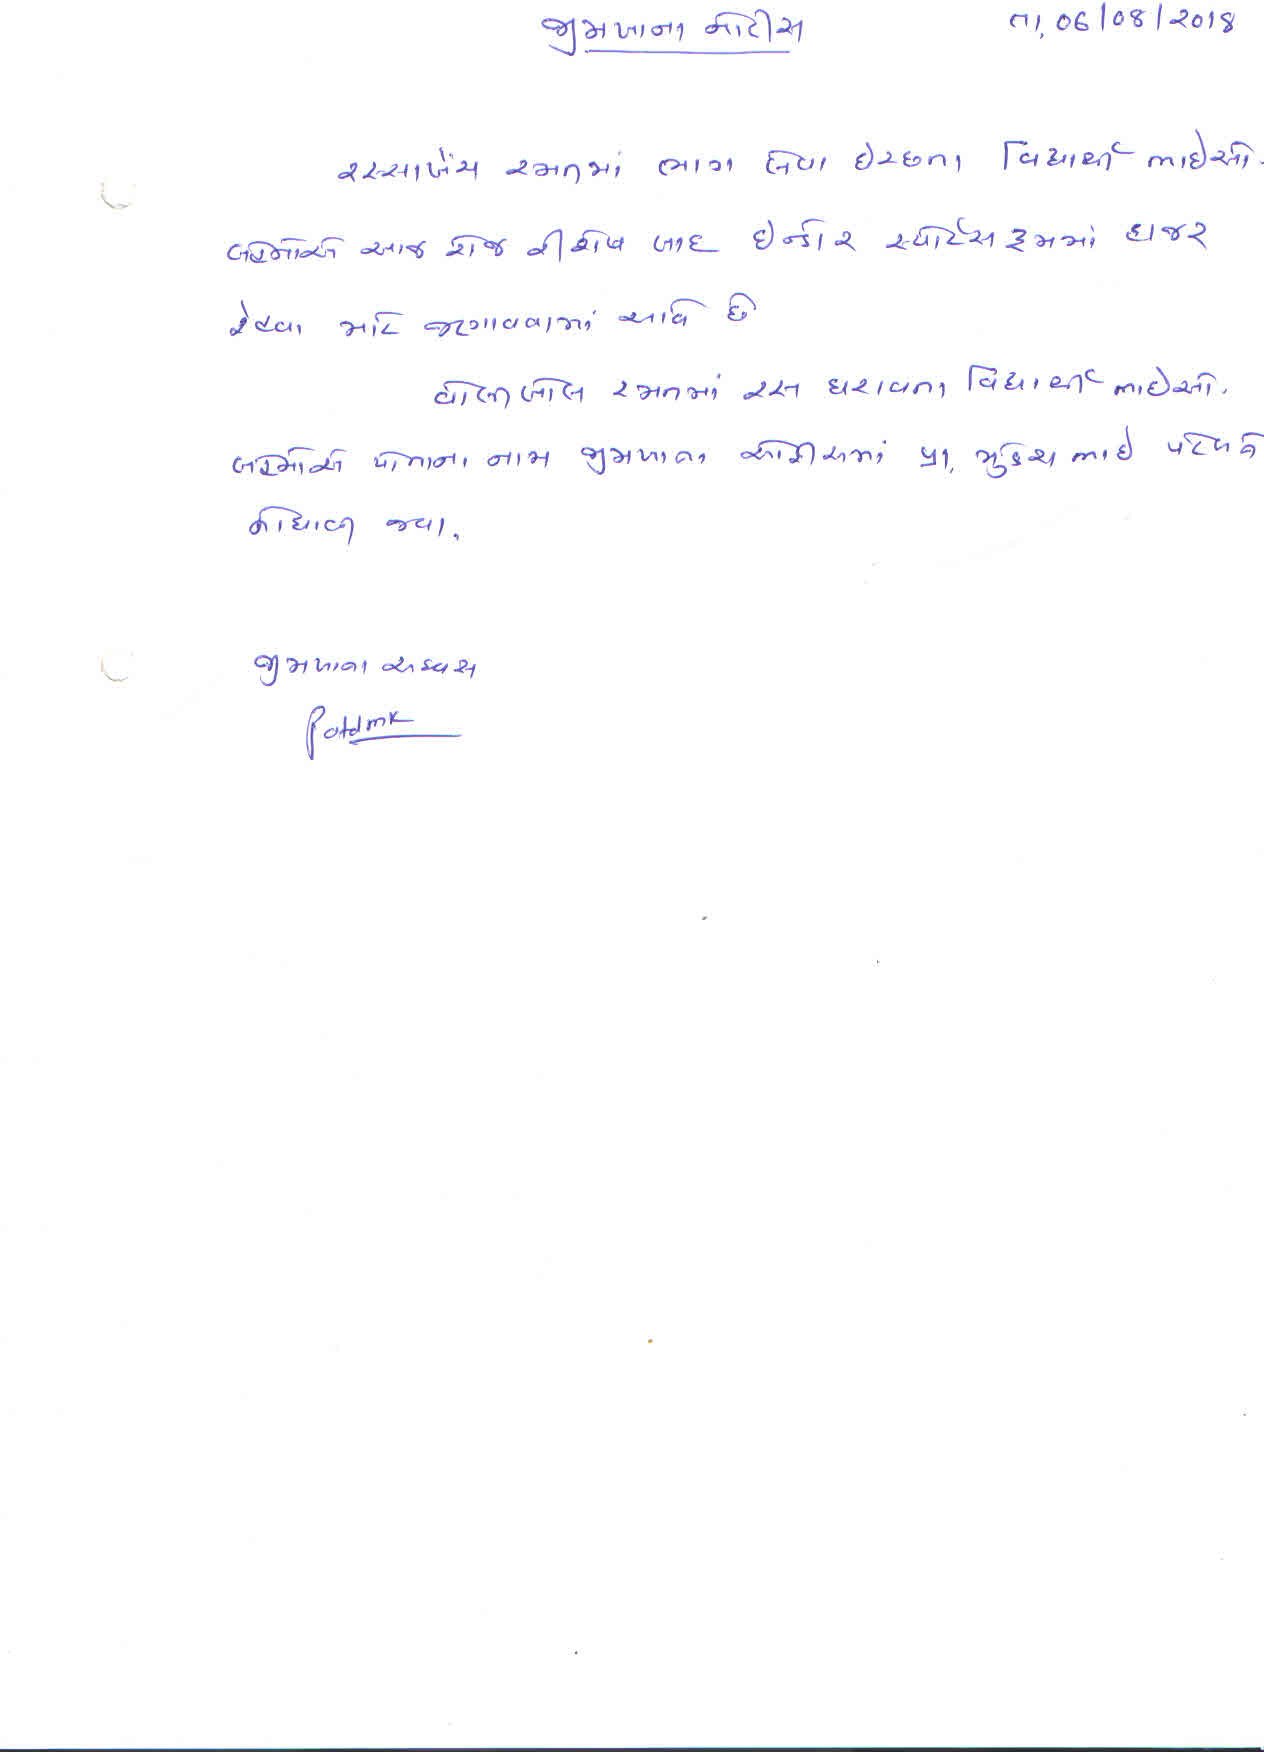 જીમખાના નોટીસ
તા, 06/08/2018
રસ્સાખેંચ રમતમાં ભાગ લેવા ઈચ્છતા વિદ્યાર્થી ભાઈઓ.
બહેનોએ આજ રોજ રીશેષ બાદ ઈન્ડોર સ્પોર્ટસ રૂમમાં હાજર
રહેવા માટે જણાવવામાં આવે છે
વોલીબોલ રમતમાં રસ ધરાવતા વિદ્યાર્થી ભાઈઓ.
બહેનોએ પોતાના નામ જીમખાના ઓફીસમાં પ્રા. મુકેશ ભાઈ પટેલને
નોંધાવી જવા.
જીમખાના અધ્યક્ષ
Patelmk